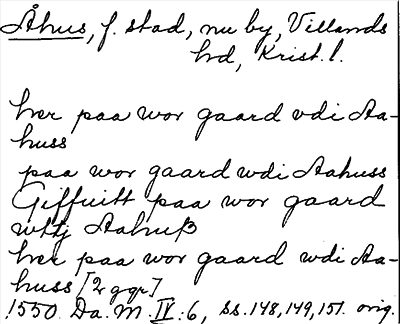 Åhus, f. stad, nu by, Villands
hd, Krist. l.
her paa wor gaard vdi Aa-
huss
paa wor gaard wdi Aahuss
Giffuitt paa wor gaard
wttj Aahuß
her paa wor gaard wdi Aa-
huss [2 ggr]
1550 Da. M. IV:6, ss. 148, 149, 151. orig.